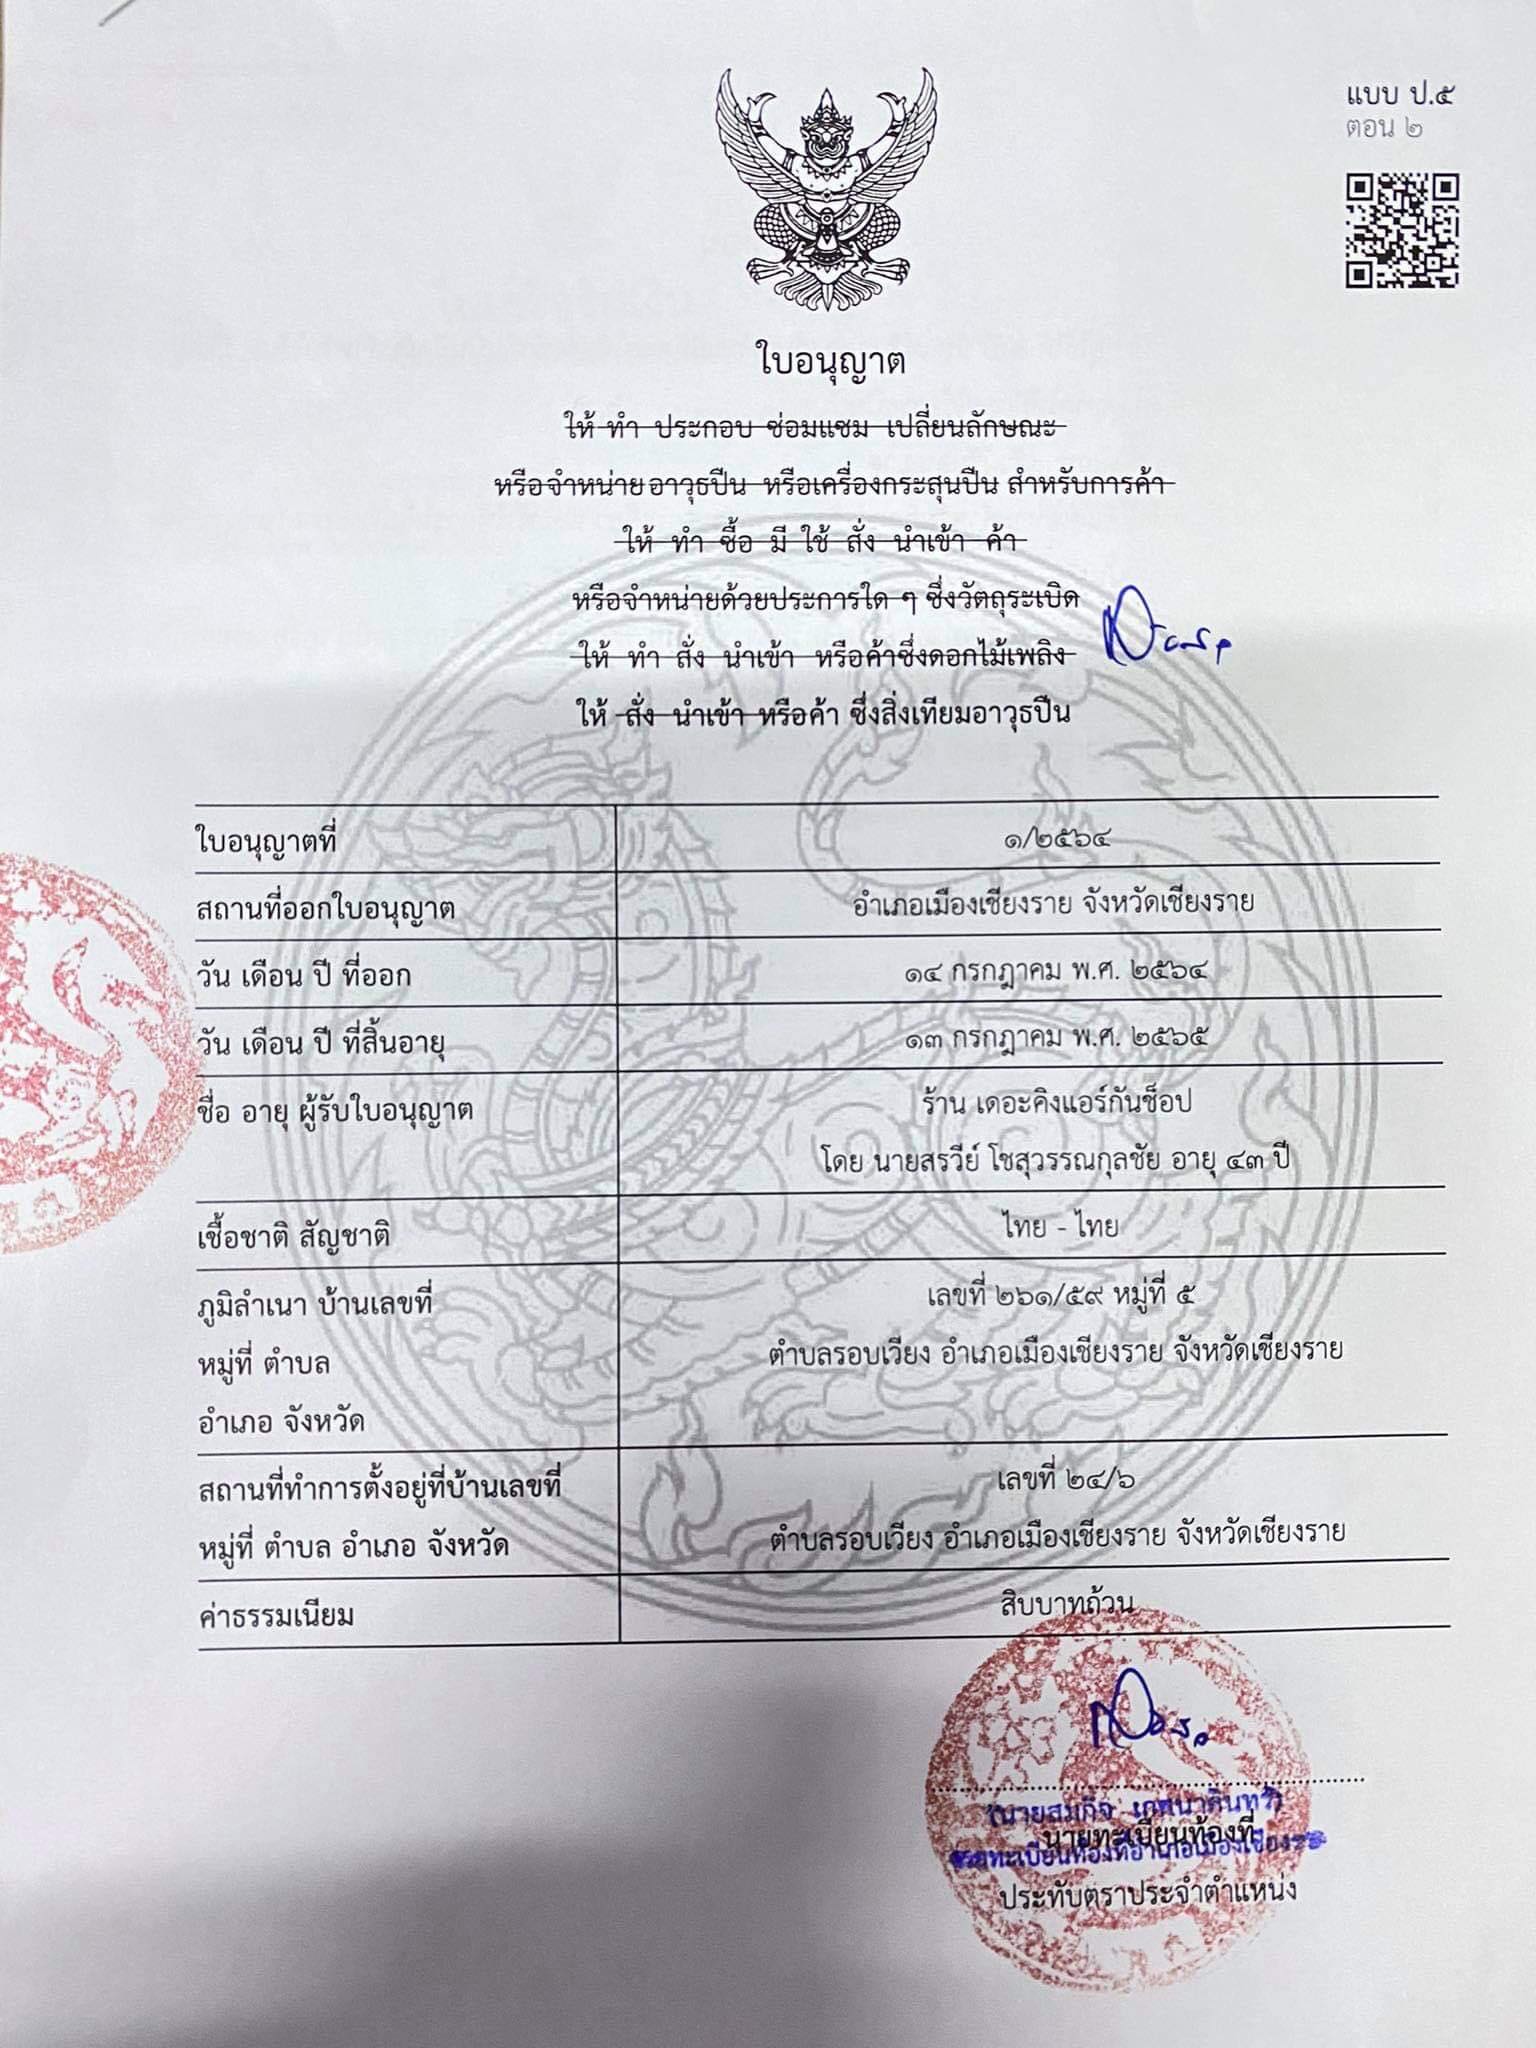 แบบ ป.๕
ตอน ๒
ใบอนุญาต
ให้ ทำ ประกอบ ซ่อมแซม เปลี่ยนลักษณะ
หรือจำหน่ายอาวุธปืน หรือเครื่องกระสุนปืน สำหรับการค้า
ให้ ทำ ซื้อ มี ใช้ สั่ง นำเข้า ค้า
หรือจำหน่ายด้วยประการใด ๆ ซึ่งวัตถุระเบิด
ให้ ทำ สั่ง นำเข้า หรือค้าซึ่งดอกไม้เพลิง
ให้ สั่ง นำเข้า หรือค้า ซึ่งสิ่งเทียมอาวุธปืน
ใบอนุญาตที่ ๑/๒๕๖๔
สถานที่ออกใบอนุญาต อำเภอเมืองเชียงราย จังหวัดเชียงราย
วัน เดือน ปี ที่ออก ๑๔ กรกฎาคม พ.ศ. ๒๕๖๔
วัน เดือน ปี ที่สิ้นอายุ ๑๓ กรกฎาคม พ.ศ. ๒๕๖๕
ชื่อ อายุ ผู้รับใบอนุญาต ร้าน เดอะคิงแอร์กันช็อป
โดย นายสรวีย์ โชสุวรรณกุลชัย อายุ ๔๓ ปี
เชื้อชาติ สัญชาติ ไทย - ไทย
ภูมิลำเนา บ้านเลขที่ เลขที่ ๒๖๑/๕๙ หมู่ที่ ๕
หมู่ที่ ตำบล ตำบลรอบเวียง อำเภอเมืองเชียงราย จังหวัดเชียงราย
อำเภอ จังหวัด
สถานที่ทำการตั้งอยู่ที่บ้านเลขที่ เลขที่ ๒๔/๖
หมู่ที่ ตำบล อำเภอ จังหวัด ตำบลรอบเวียง อำเภอเมืองเชียงราย จังหวัดเชียงราย
ค่าธรรมเนียม สิบบาทถ้วน
(นายสมกิจ เกศนาคินทร์)
นายทะเบียนท้องที่
นายทะเบียนท้องที่อำเภอเมืองเชียงราย
ประทับตราประจำตำแหน่ง